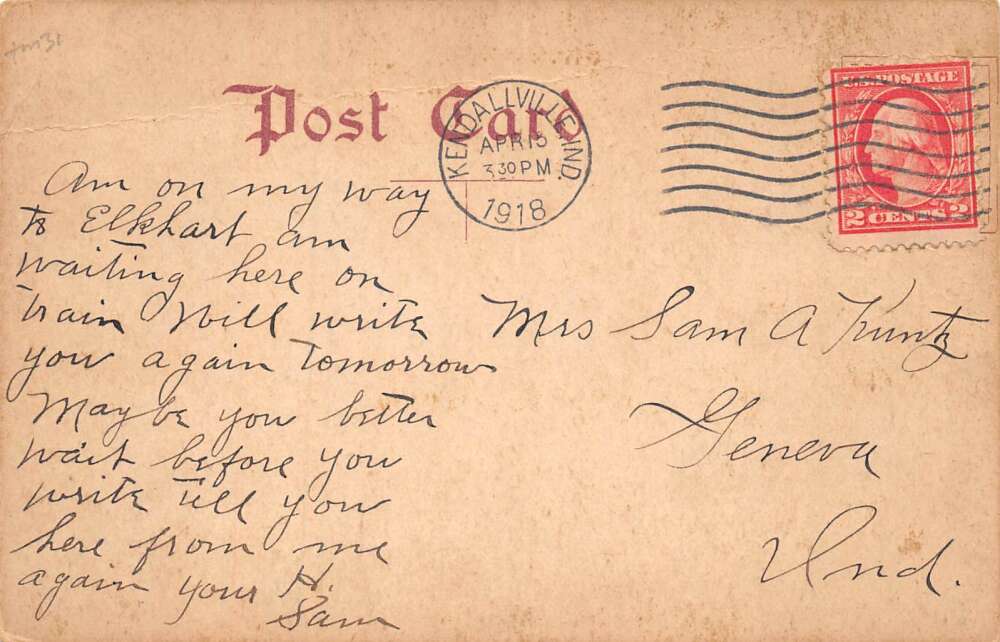 Post Card
KENDALLVILLE, IND.
APR 15
3 30 PM
1918
U.S. POSTAGE
2 CENTS 2
Am on my way
to Elkhart am
waiting here on
train Will write
you again tomorrow
Maybe you better
wait before you
write till you
here from me
again your H.
Sam
Mrs Sam A Kuntz
Geneva
Ind.